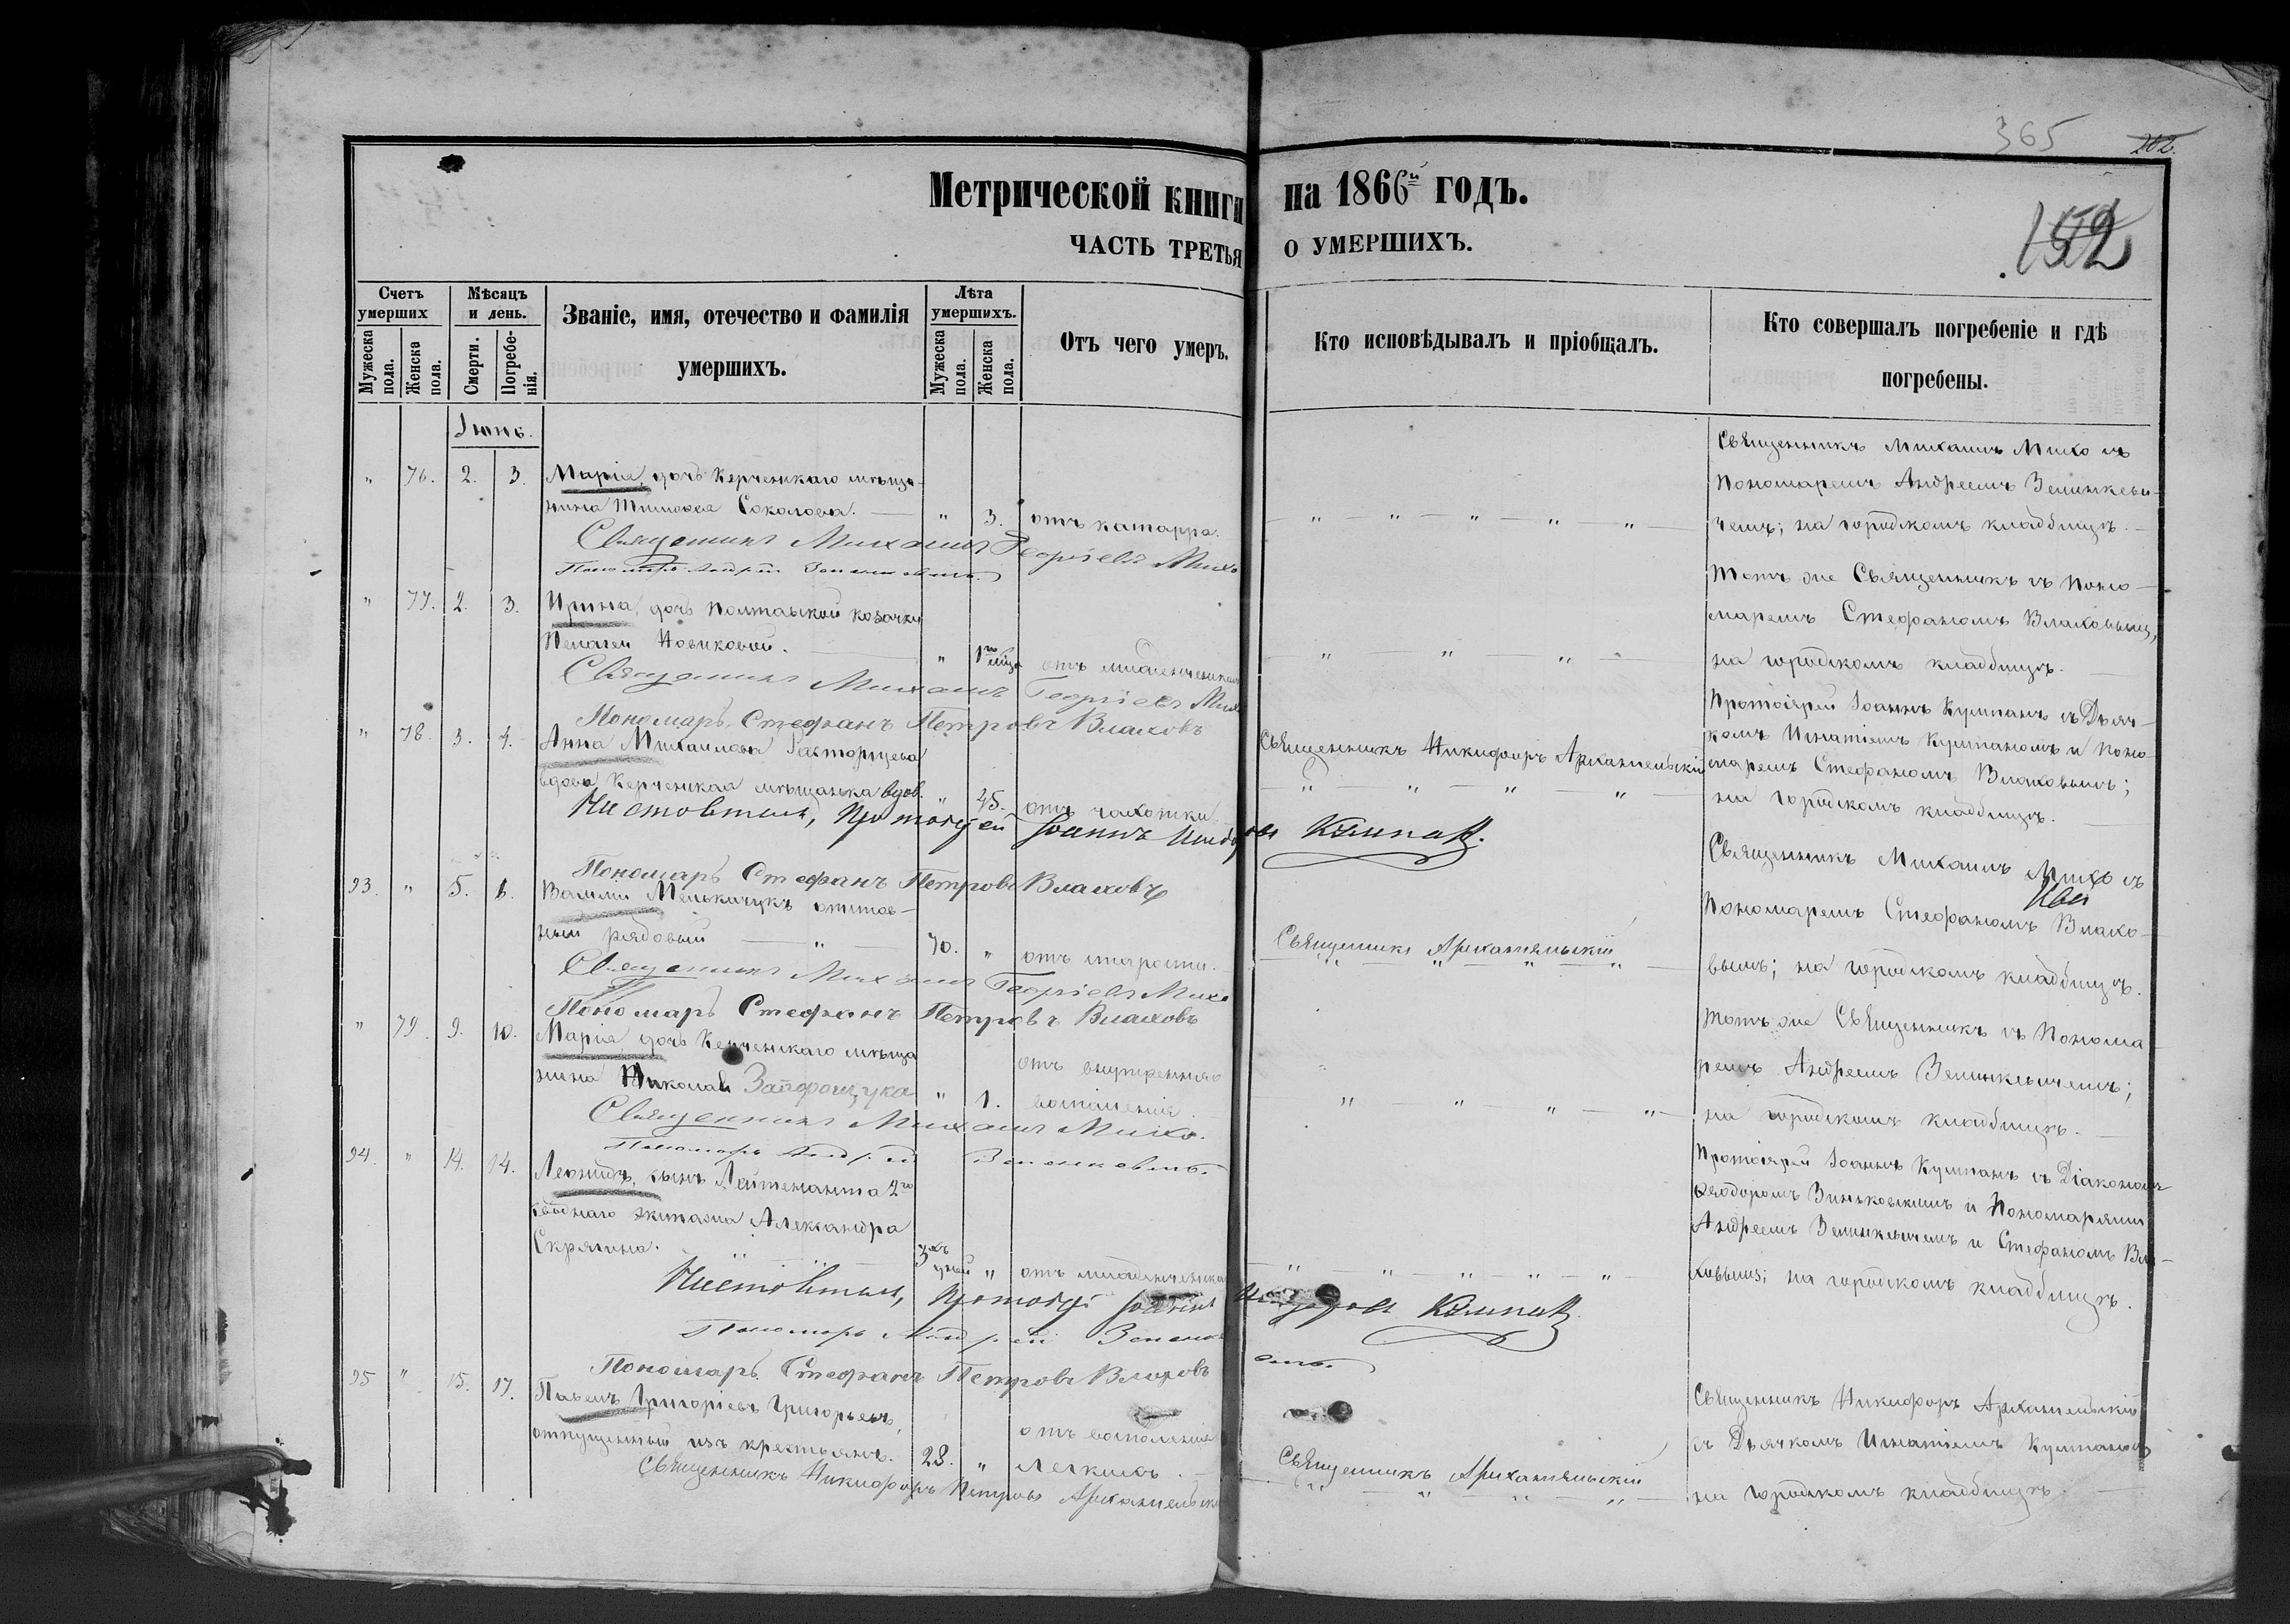 365
202.
Метрической книги на 1866й годъ.
152
ЧАСТЬ ТРЕТЬЯ О УМЕРШИХЪ.
Счетъ умерших
Мѣсяцъ и день.
Званіе, имя, отечество и фамилія умерших.
Лѣта умершихъ.
Отъ чего умеръ.
Кто исповѣдывалъ и пріобщалъ.
Кто совершалъ погребеніе и гдѣ погребены.
Мужеска пола.
Женска пола.
Смерти.
Погребенія.
Мужеска пола.
Женска пола.
Іюнь.
" 76. 2. 3. Марія, дочь Керченскаго мѣща-
нина Тимофея Соколова. " 3. отъ катарра.
Священникъ Михаилъ Георгіевъ Михо
Пономарь Андрей
Священникъ Михаилъ Михо съ
Пономаремъ Андреемъ Зелинкеви-
чемъ; на городскомъ кладбищѣ.
" 77. 2. 3. Ирина, дочь Полтавской козачки
Пелагеи Новиковой. " 1го мѣсца отъ младенческой
Священникъ Михаилъ Георгіевъ Михо
Пономарь Стефанъ Петровъ Влаховъ
Тотъ же Священникъ съ Поно-
маремъ Стефаномъ Влаховымъ,
на городскомъ кладбищѣ.
" 78. 3. 4. Анна Михаилова Расторгуева
вдова Керченская мѣщанка вдов. " 45. отъ чахотки.
Настоятель, Протоіерей Іоаннъ Кумпанъ.
Пономарь Стефанъ Петровъ Влаховъ
Священникъ Никифоръ Архангельскій
Протоіерей Іоаннъ Кумпанъ съ Дьяч-
комъ Игнатіемъ Кумпаномъ и Поно-
маремъ Стефаномъ Влаховымъ;
на городскомъ кладбищѣ.
93. " 5. 6. Василій Мельничукъ отстав-
ный рядовый " 70. " отъ старости.
Священникъ Михаилъ Георгіевъ Михо
Пономарь Стефанъ Петровъ Влаховъ
Священникъ Архангельскій
Священникъ Михаилъ Михо съ
Пономаремъ Стефаномъ Влахо-
вымъ; на городскомъ кладбищѣ.
" 79. 9. 10. Марія, дочь Керченскаго мѣща
нина Николая " 1. отъ внутренняго
воспаленія.
Священникъ Михаилъ Михо.
Пономарь Андрей
Тотъ же Священникъ съ Понома
ремъ Андреемъ Зелинкевичемъ;
на городскомъ кладбищѣ.
94. " 14. 14. Леонидъ, сынъ Лейтенанта 2го
своднаго экипажа Александра
Скрягина. 3хъ дней " отъ младенческой
Настоятель, Протоіерей Іоаннъ Кумпанъ
Пономарь Андрей
Пономарь Стефанъ Петровъ Влаховъ
Протоіерей Іоаннъ Кумпанъ съ Діакономъ
Ѳеодоромъ Зиньковскимъ и Пономарями
Андреемъ Зелинкевичемъ и Стефаномъ Вла-
ховымъ; на городскомъ кладбищѣ.
95 " 15. 17. Павелъ Григоріевъ Григорьевъ,
отпущенный изъ крестьянъ. 28. " отъ воспаленія
легкихъ.
Священникъ Никифоръ Петровъ Архангельскій
Священникъ Архангельскій
Священникъ Никифоръ Архангельскій
съ Дьячкомъ Игнатіемъ Кумпаномъ
на городскомъ кладбищѣ.